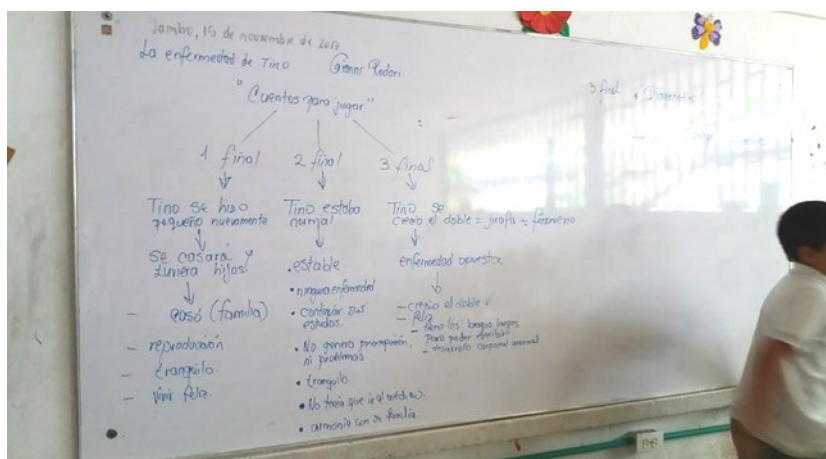 Jambo, 15 de noviembre de 2017
La enfermedad de Tino Gianni Rodari.
"Cuentos para jugar"
1 final 2 final 3 final
Tino se hizo
pequeño nuevamente
Se casará y
tuviera hijos.
- casó (familia)
- reproducción
- tranquilo.
- vivir feliz.
Tino estaba
normal
• estable
• ninguna enfermedad
• continuar sus
estudios.
• No genera preocupación,
ni problemas
• tranquilo
• No tenía que ir al médico.
• armonía con su familia.
Tino se
creció el doble = jirafa = fenómeno
enfermedad opuesta
- creció el doble ✓
- feliz
- tenía los brazos largos
para poder escribir
- desarrollo corporal anormal
3 final